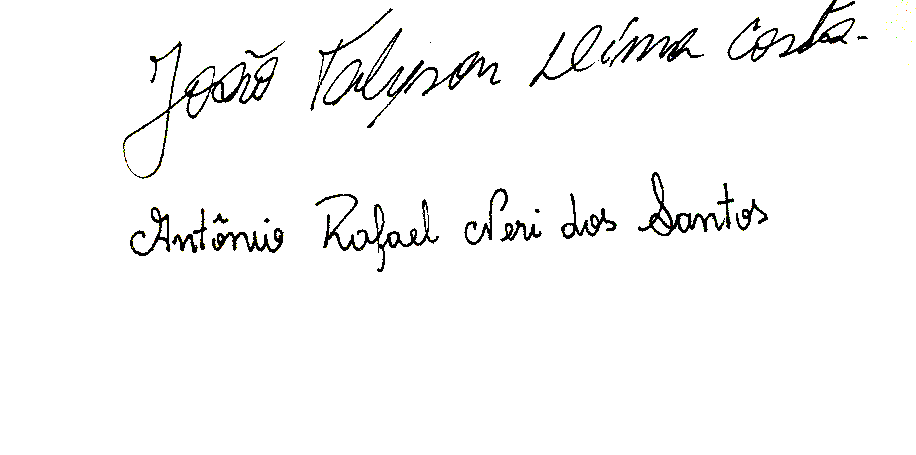 João Talyson Lima Costa.
Antônio Rafael Neri dos Santos